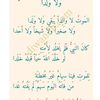 ولا ولدا
الموت لا والدا يبقي ولا ولدا
ولا صغيرا ولا شيخا ولا أحدا
كان النبي فلم يخلد لأمته
لو خلد الله حيا قبله خلدا
للموت فينا سهام غير مخطئة
من فاته اليوم سهم لم يفته غدا